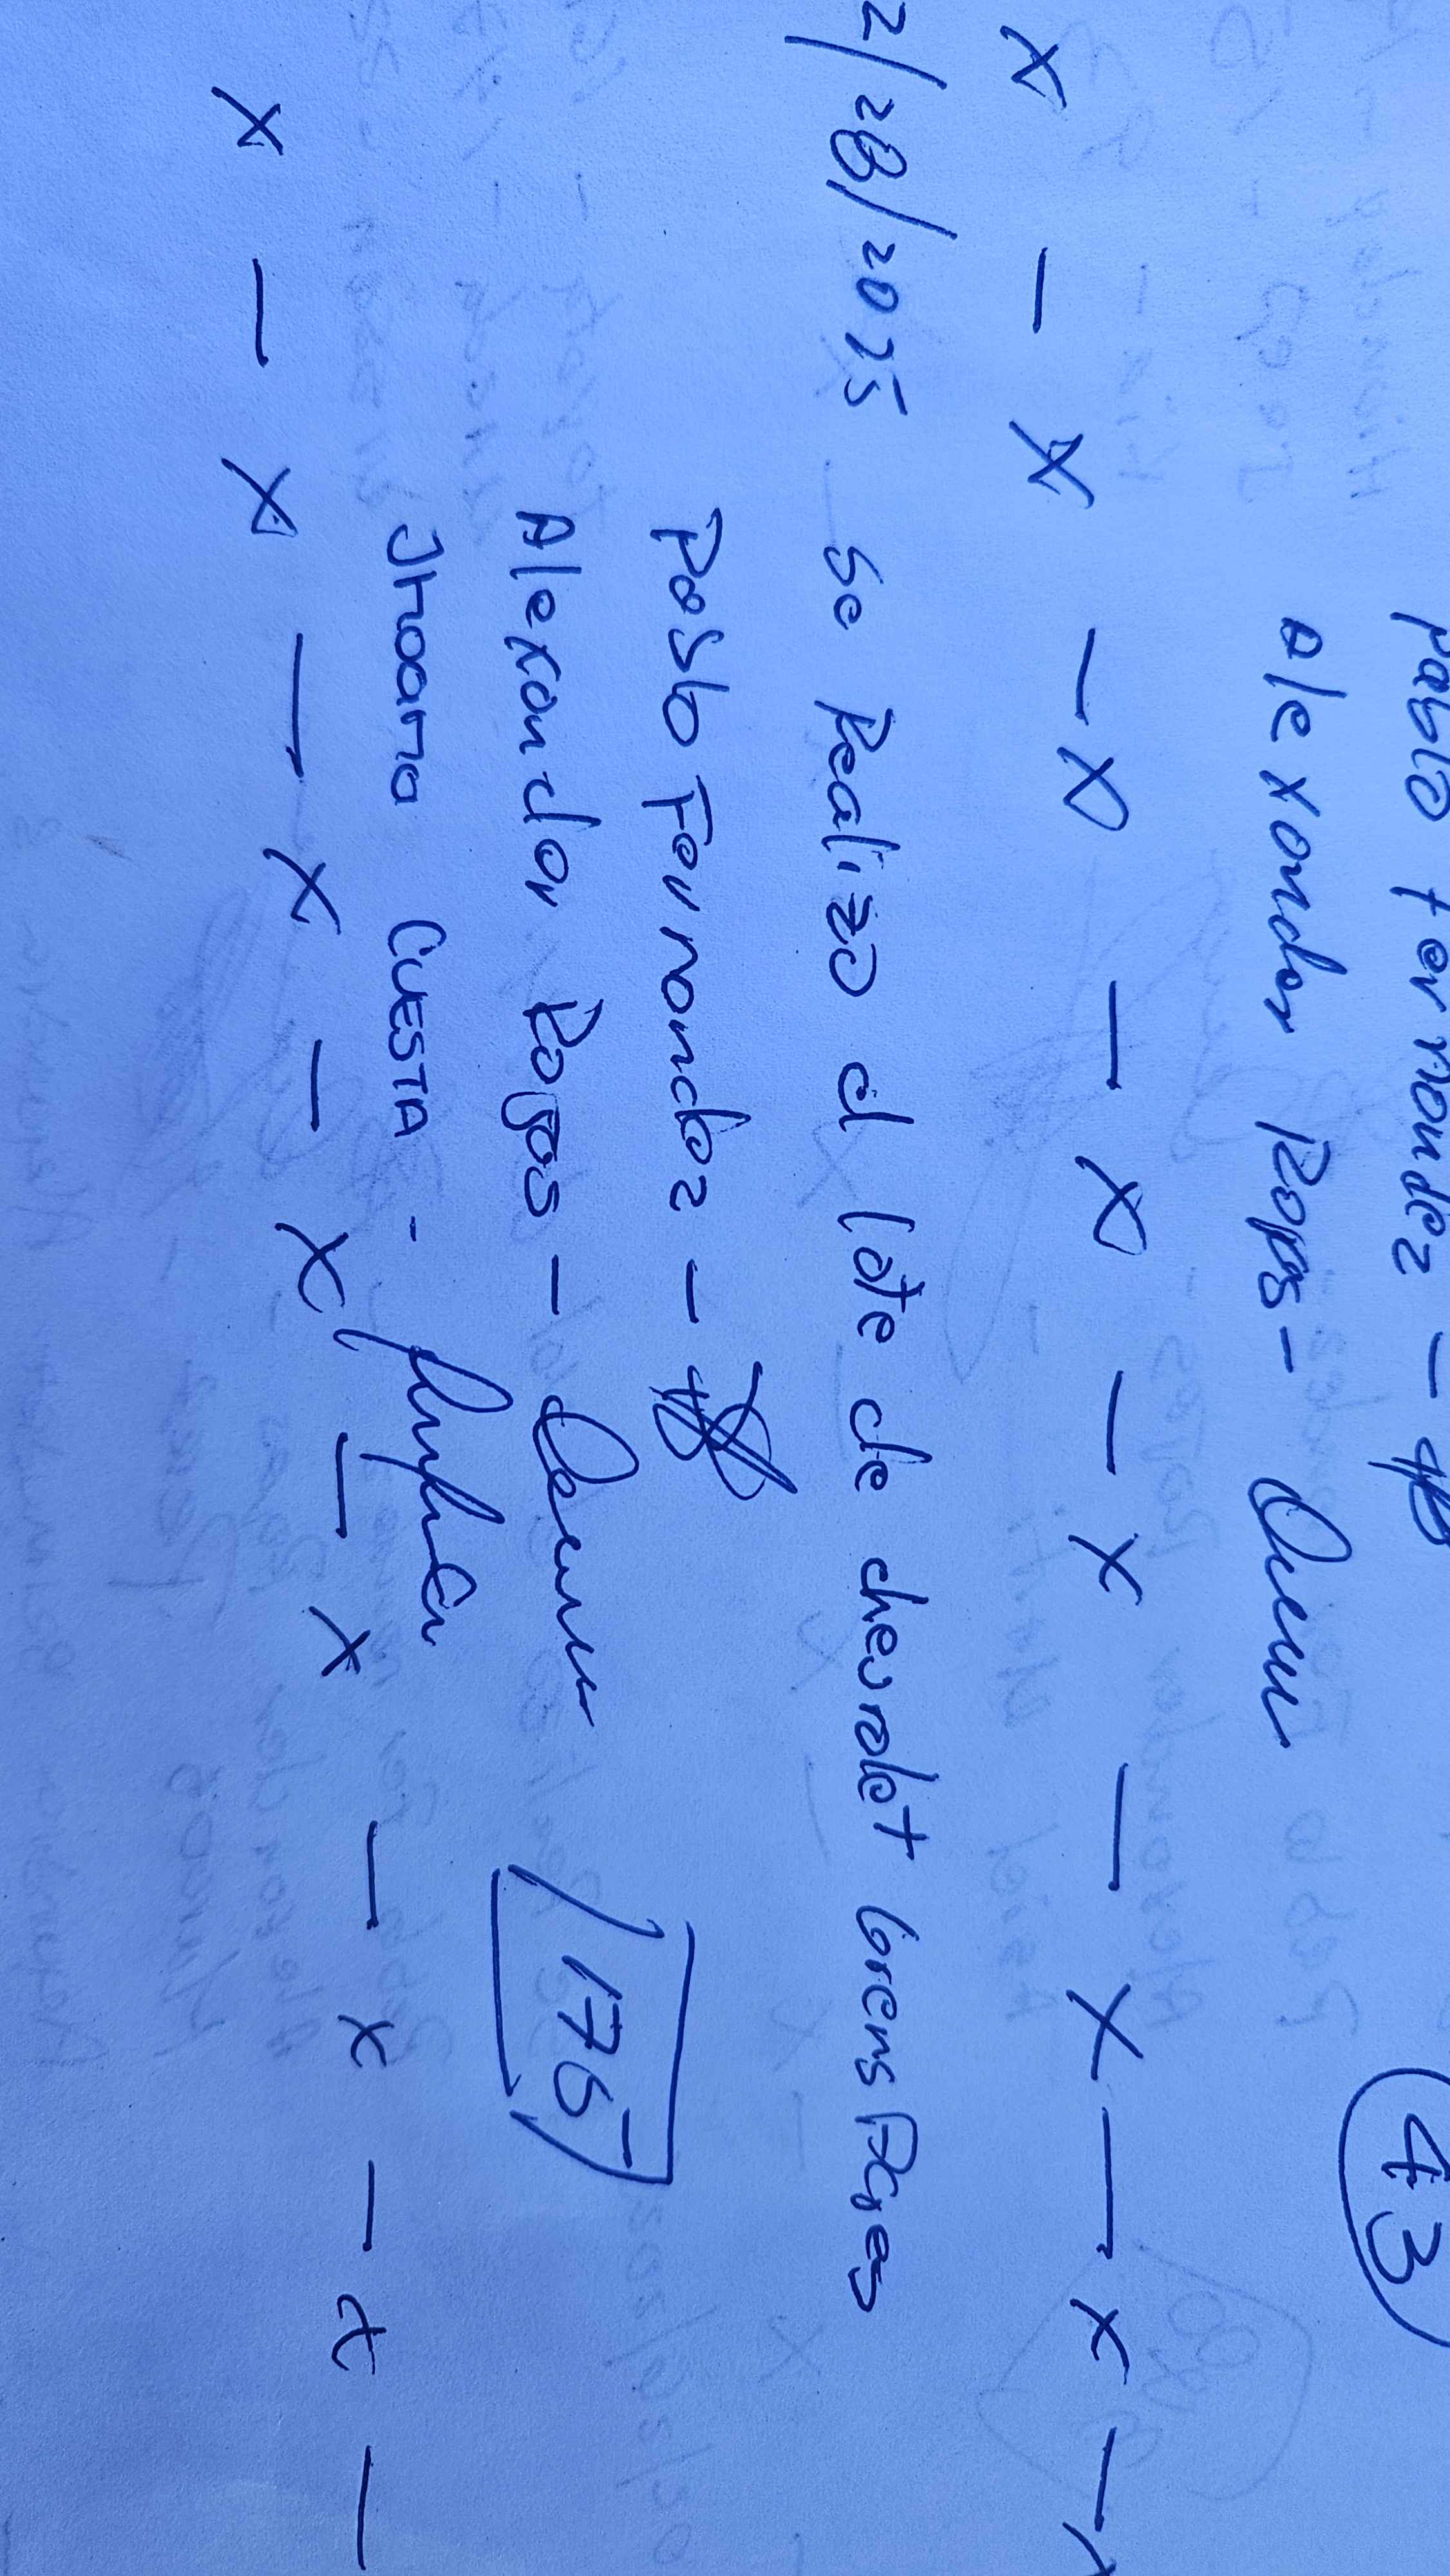 Pablo Fernandez -
Alexander Rojas -
43
x - x - x - x - x - x - x - x
2/28/2025 se Realizo el lote de chevrolet
Pablo Fernandez -
Alexander Rojas -
175
Jhoana CUESTA -
x - x - x - x - x - x - x -